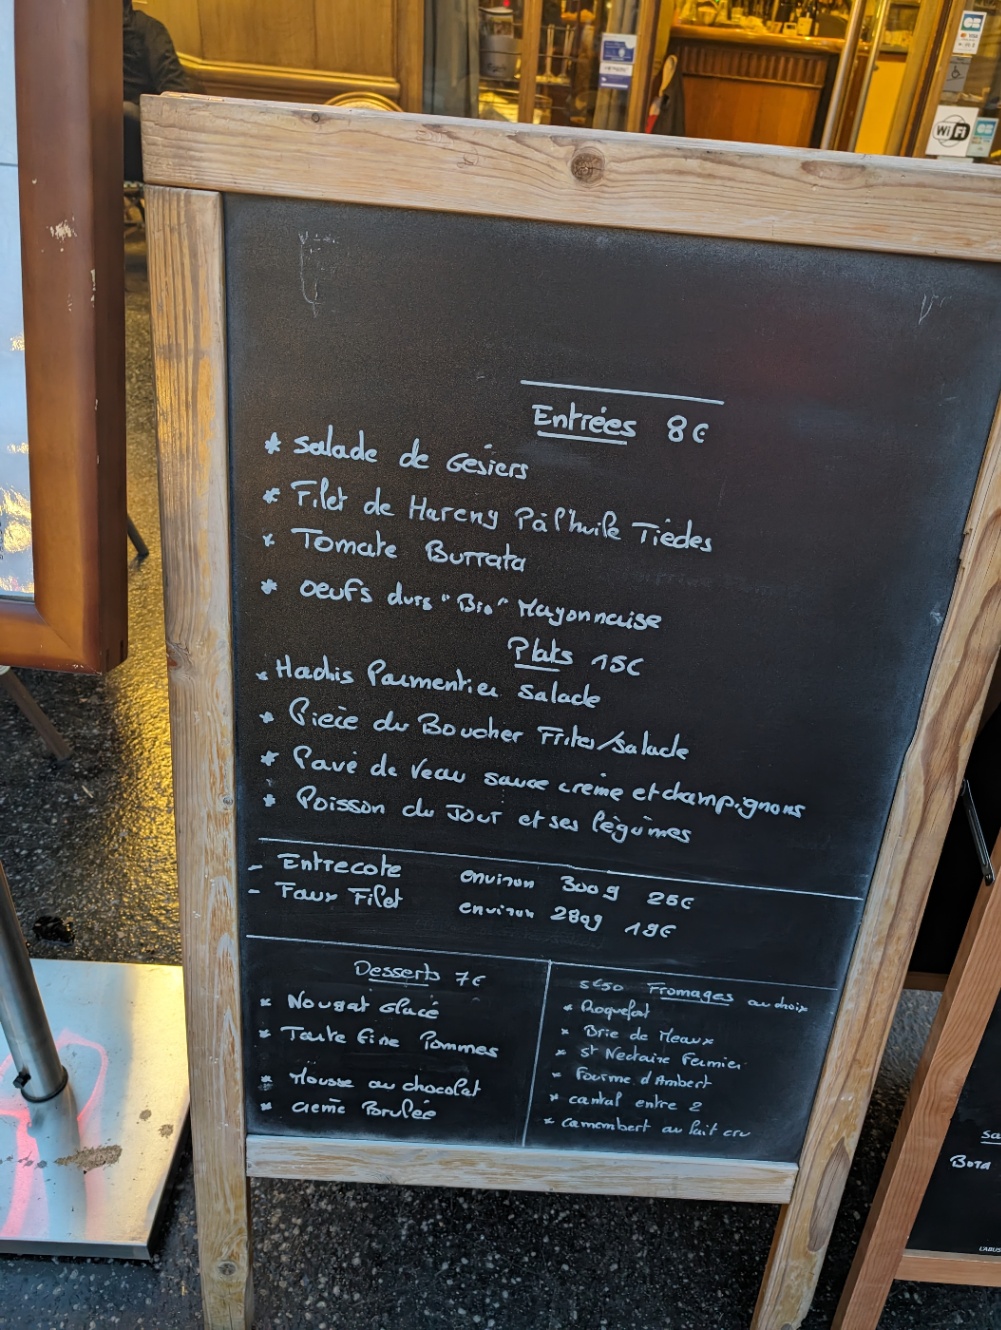 WiFi
Entrées 8€
* Salade de Gésiers
* Filet de Hareng P à l'huile Tièdes
* Tomate Burrata
* oeufs durs "Bio" Mayonnaise
Plats 15€
* Hachis Parmentier Salade
* Pièce du Boucher Frites/salade
* Pavé de Veau sauce crème et champignons
* Poisson du Jour et ses légumes
- Entrecote environ 300g 26€
- Faux Filet environ 280g 19€
Desserts 7€
* Nougat Glacé
* Tarte fine Pommes
* Mousse au chocolat
* Creme Brulée
5€50 Fromages au choix
* Roquefort
* Brie de Meaux
* St Nectaire Fermier
* Fourme d'Ambert
* cantal entre 2
* camembert au lait cru